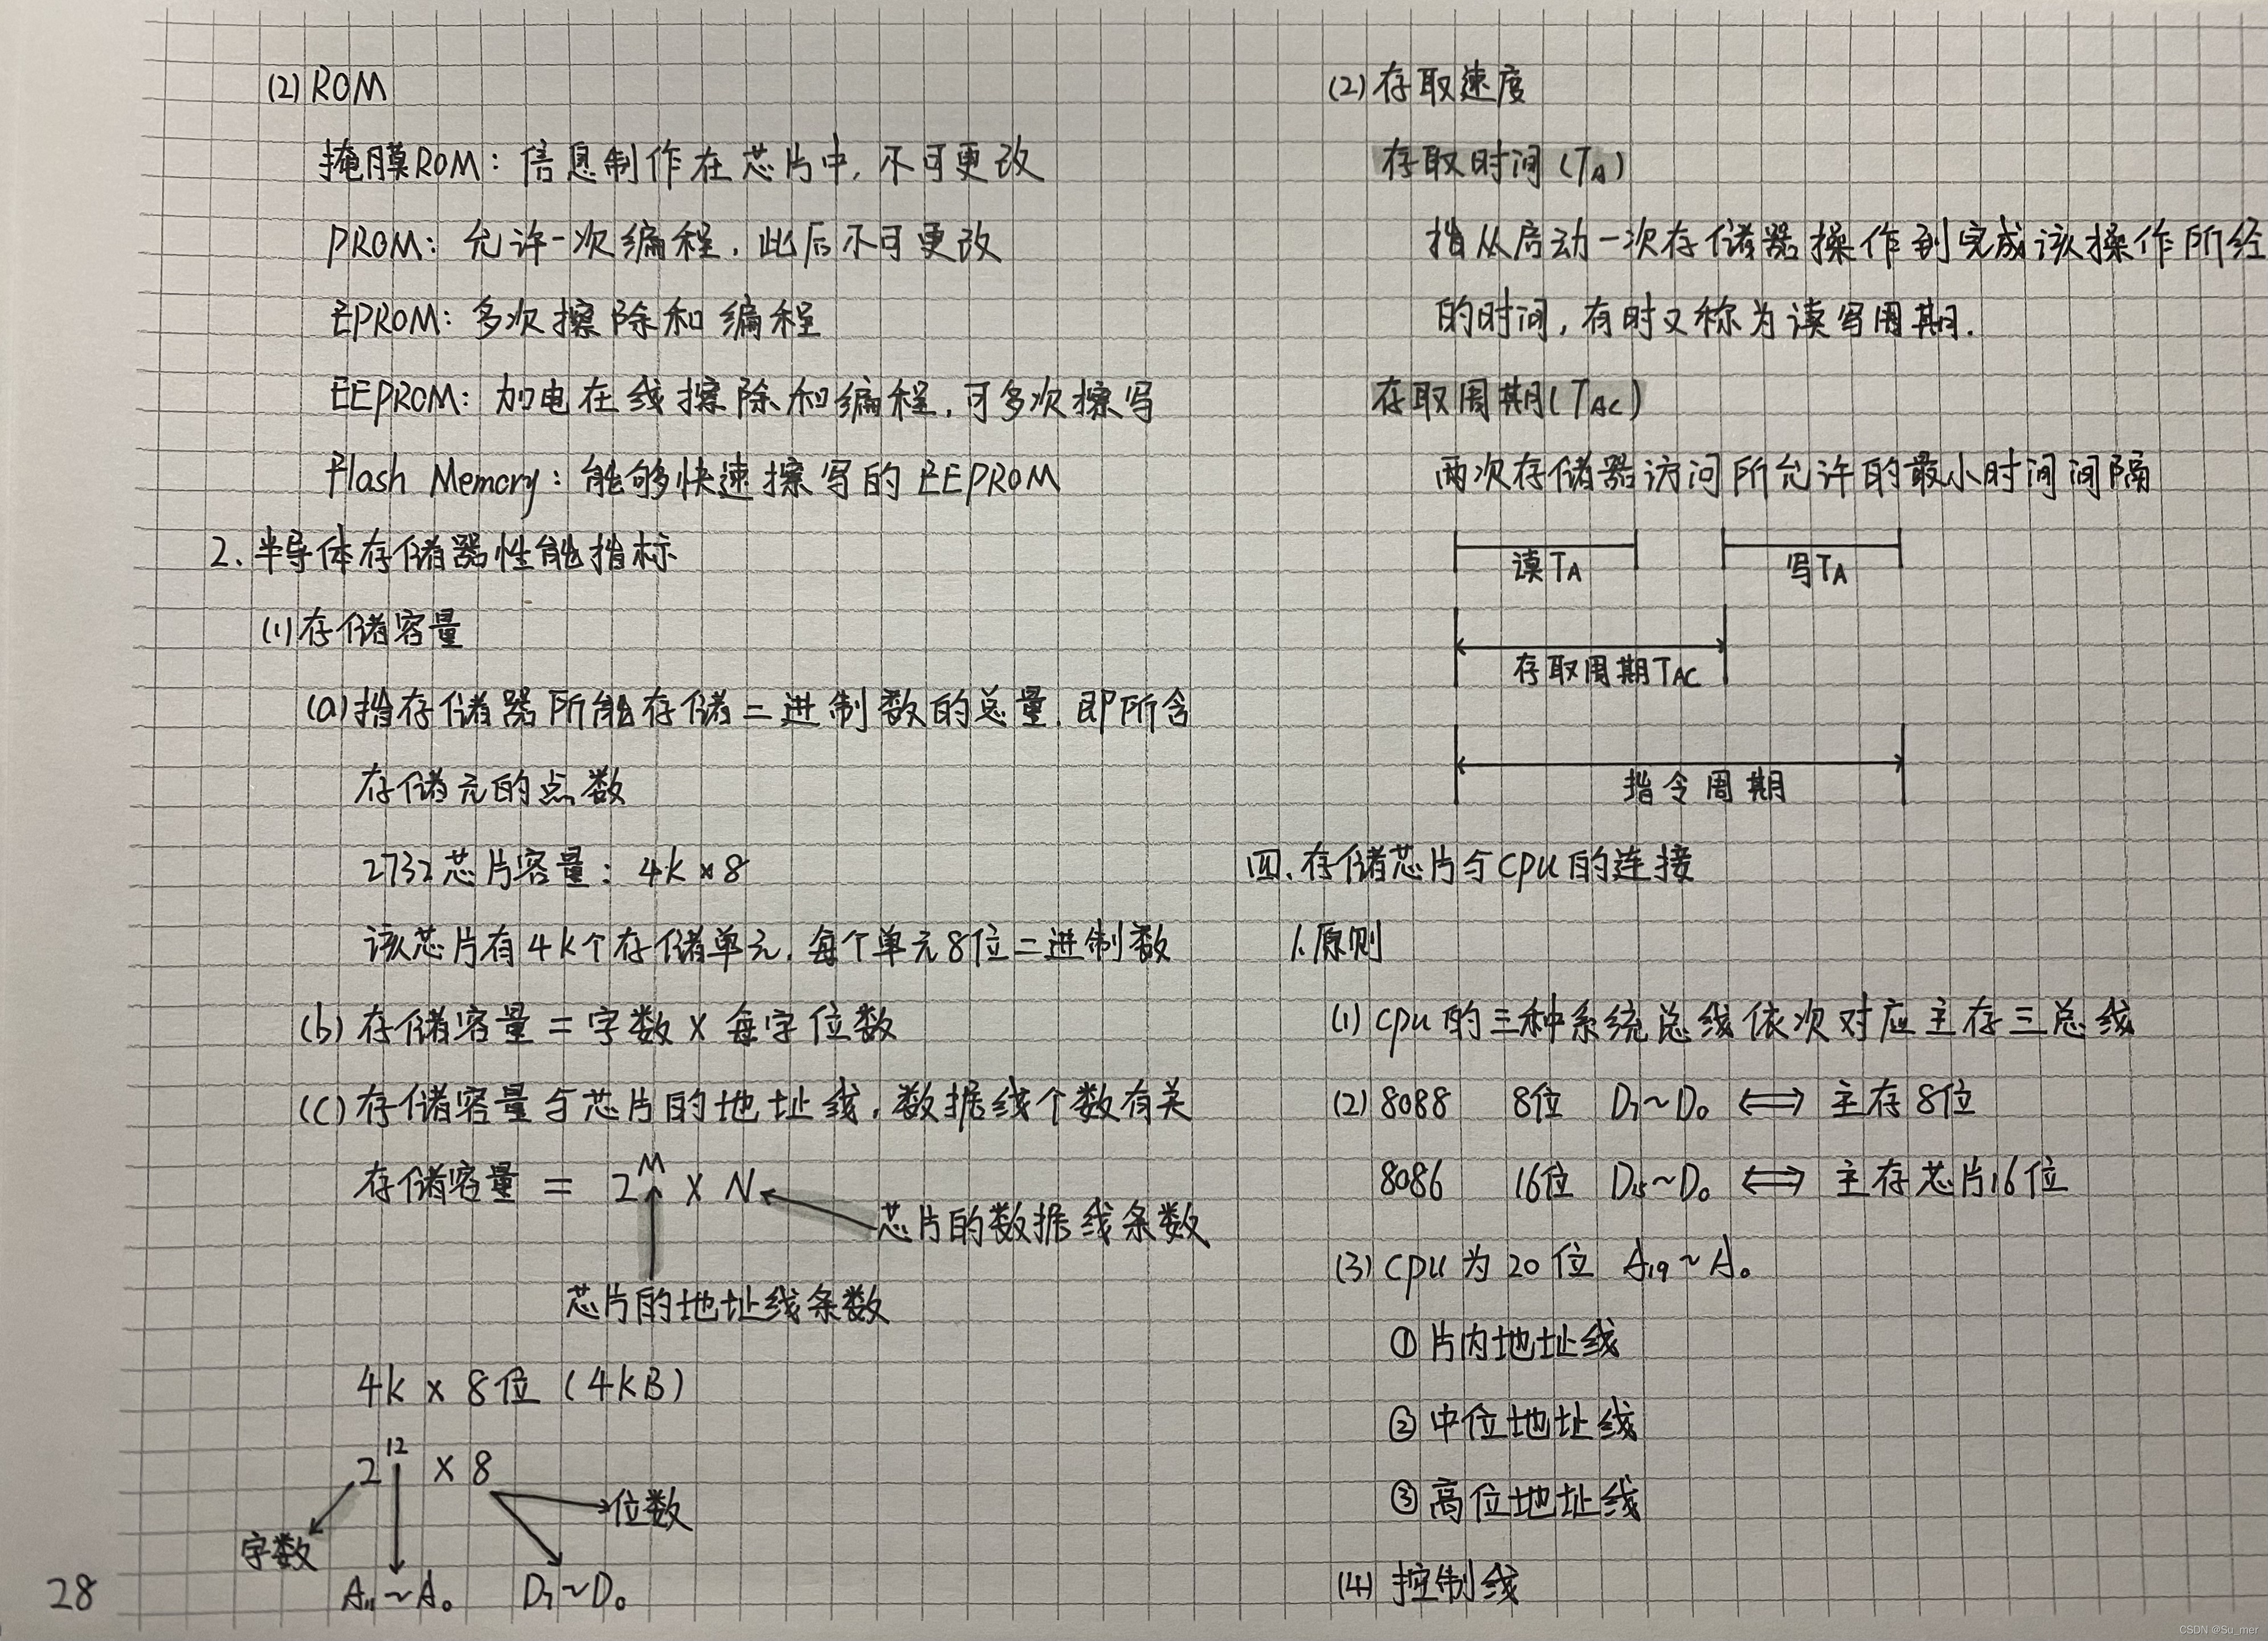 (2) ROM
掩膜ROM：信息制作在芯片中，不可更改
PROM：允许一次编程，此后不可更改
EPROM：多次擦除和编程
EEPROM：加电在线擦除和编程，可多次擦写
Flash Memory：能够快速擦写的EEPROM
2. 半导体存储器性能指标
(1) 存储容量
(a) 指存储器所能存储二进制数的总量，即所含
存储元的点数
2732芯片容量：4K×8
该芯片有4K个存储单元，每个单元8位二进制数
(b) 存储容量 = 字数 × 每字位数
(c) 存储容量与芯片的地址线，数据线个数有关
存储容量 = 2^M × N
芯片的数据线条数
芯片的地址线条数
4K × 8位 (4KB)
2^12 × 8
位数
字数
A11~A0 D7~D0
28
(2) 存取速度
存取时间 (TA)
指从启动一次存储器操作到完成该操作所经
的时间，有时又称为读写周期.
存取周期 (TAC)
两次存储器访问所允许的最小时间间隔
读TA 写TA
存取周期TAC
指令周期
四. 存储芯片与CPU的连接
1. 原则
(1) CPU的三种系统总线依次对应主存三总线
(2) 8088 8位 D7~D0 ⟺ 主存8位
8086 16位 D15~D0 ⟺ 主存芯片16位
(3) CPU为20位 A19~A0
① 片内地址线
② 中位地址线
③ 高位地址线
(4) 控制线
CSDN @Su_mer